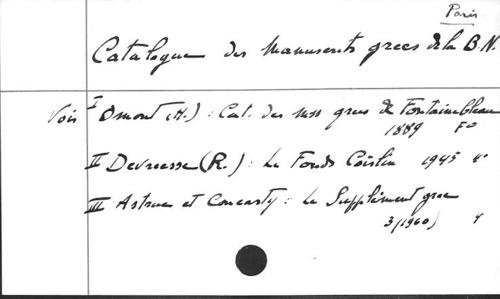 Paris
Catalogue des Manuscrits grecs de la B.N.
Voir I Omont (H.) : Cat. des mss grecs de Fontainebleau
1889 F°
II Devreesse (R.) : Le Fonds Coislin 1945 4°
III Astruc et Concasty : Le Supplément grec
3 (1960) 4